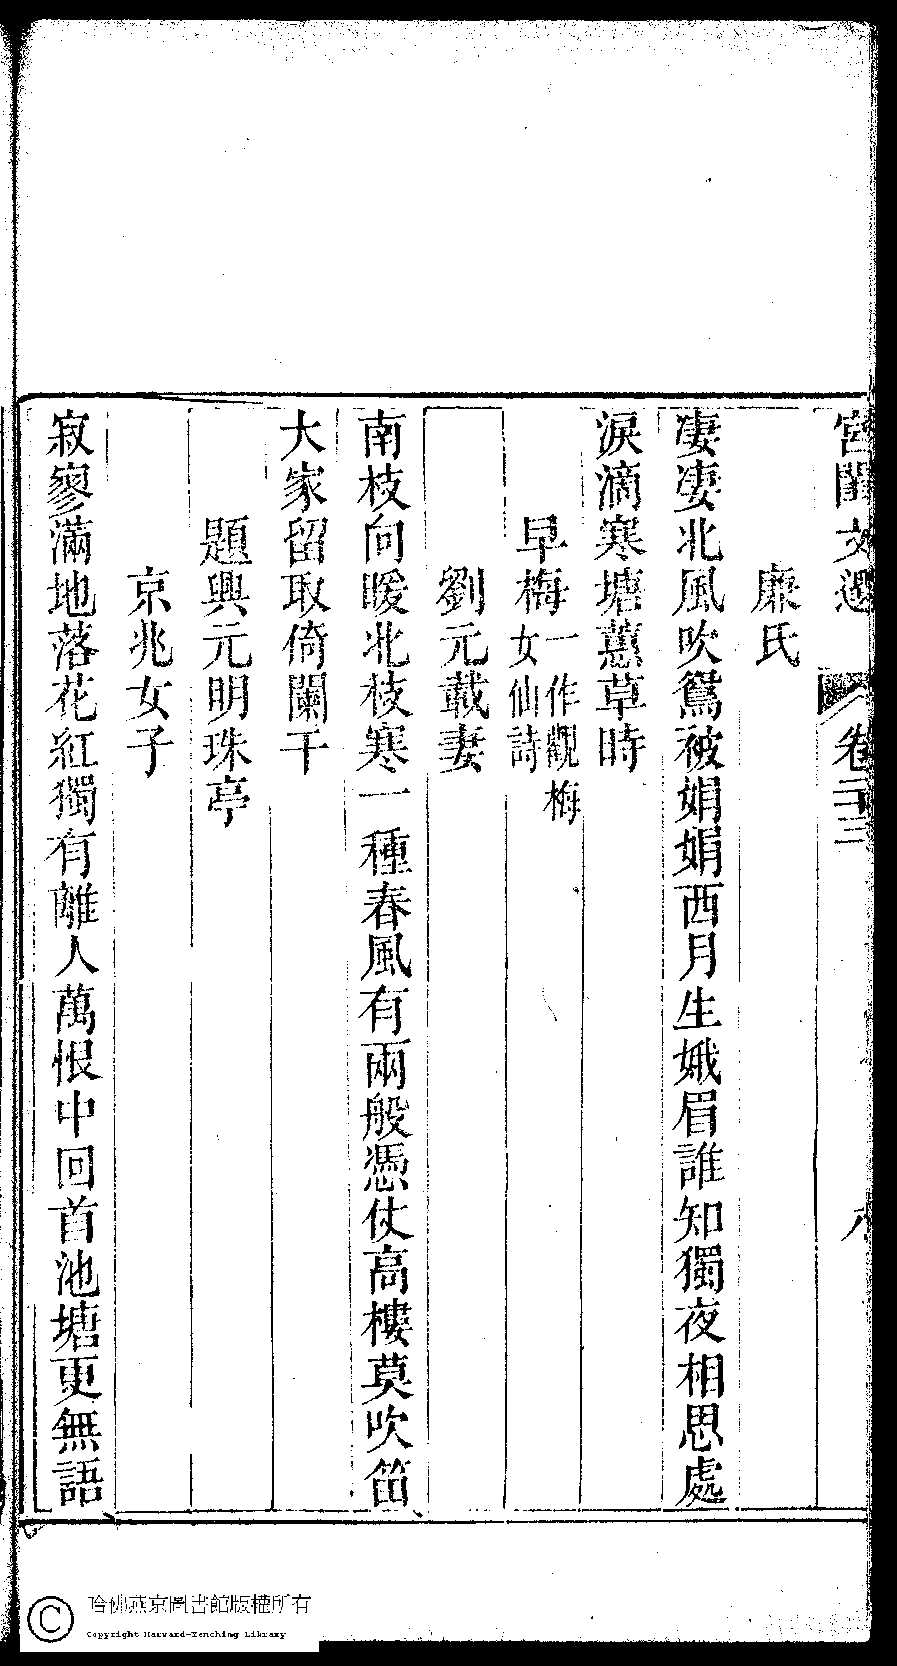 宮閨文選 卷二十三 八
廉氏
凄凄北風吹鴛被娟娟西月生娥眉誰知獨夜相思處
淚滴寒塘蕙草時
早梅一作觀梅女仙詩
劉元載妻
南枝向暖北枝寒一種春風有兩般憑仗高樓莫吹笛
大家留取倚闌干
題興元明珠亭
京兆女子
寂寥滿地落花紅獨有離人萬恨中回首池塘更無語
哈佛燕京圖書館版權所有
Copyright Harvard-Yenching Library